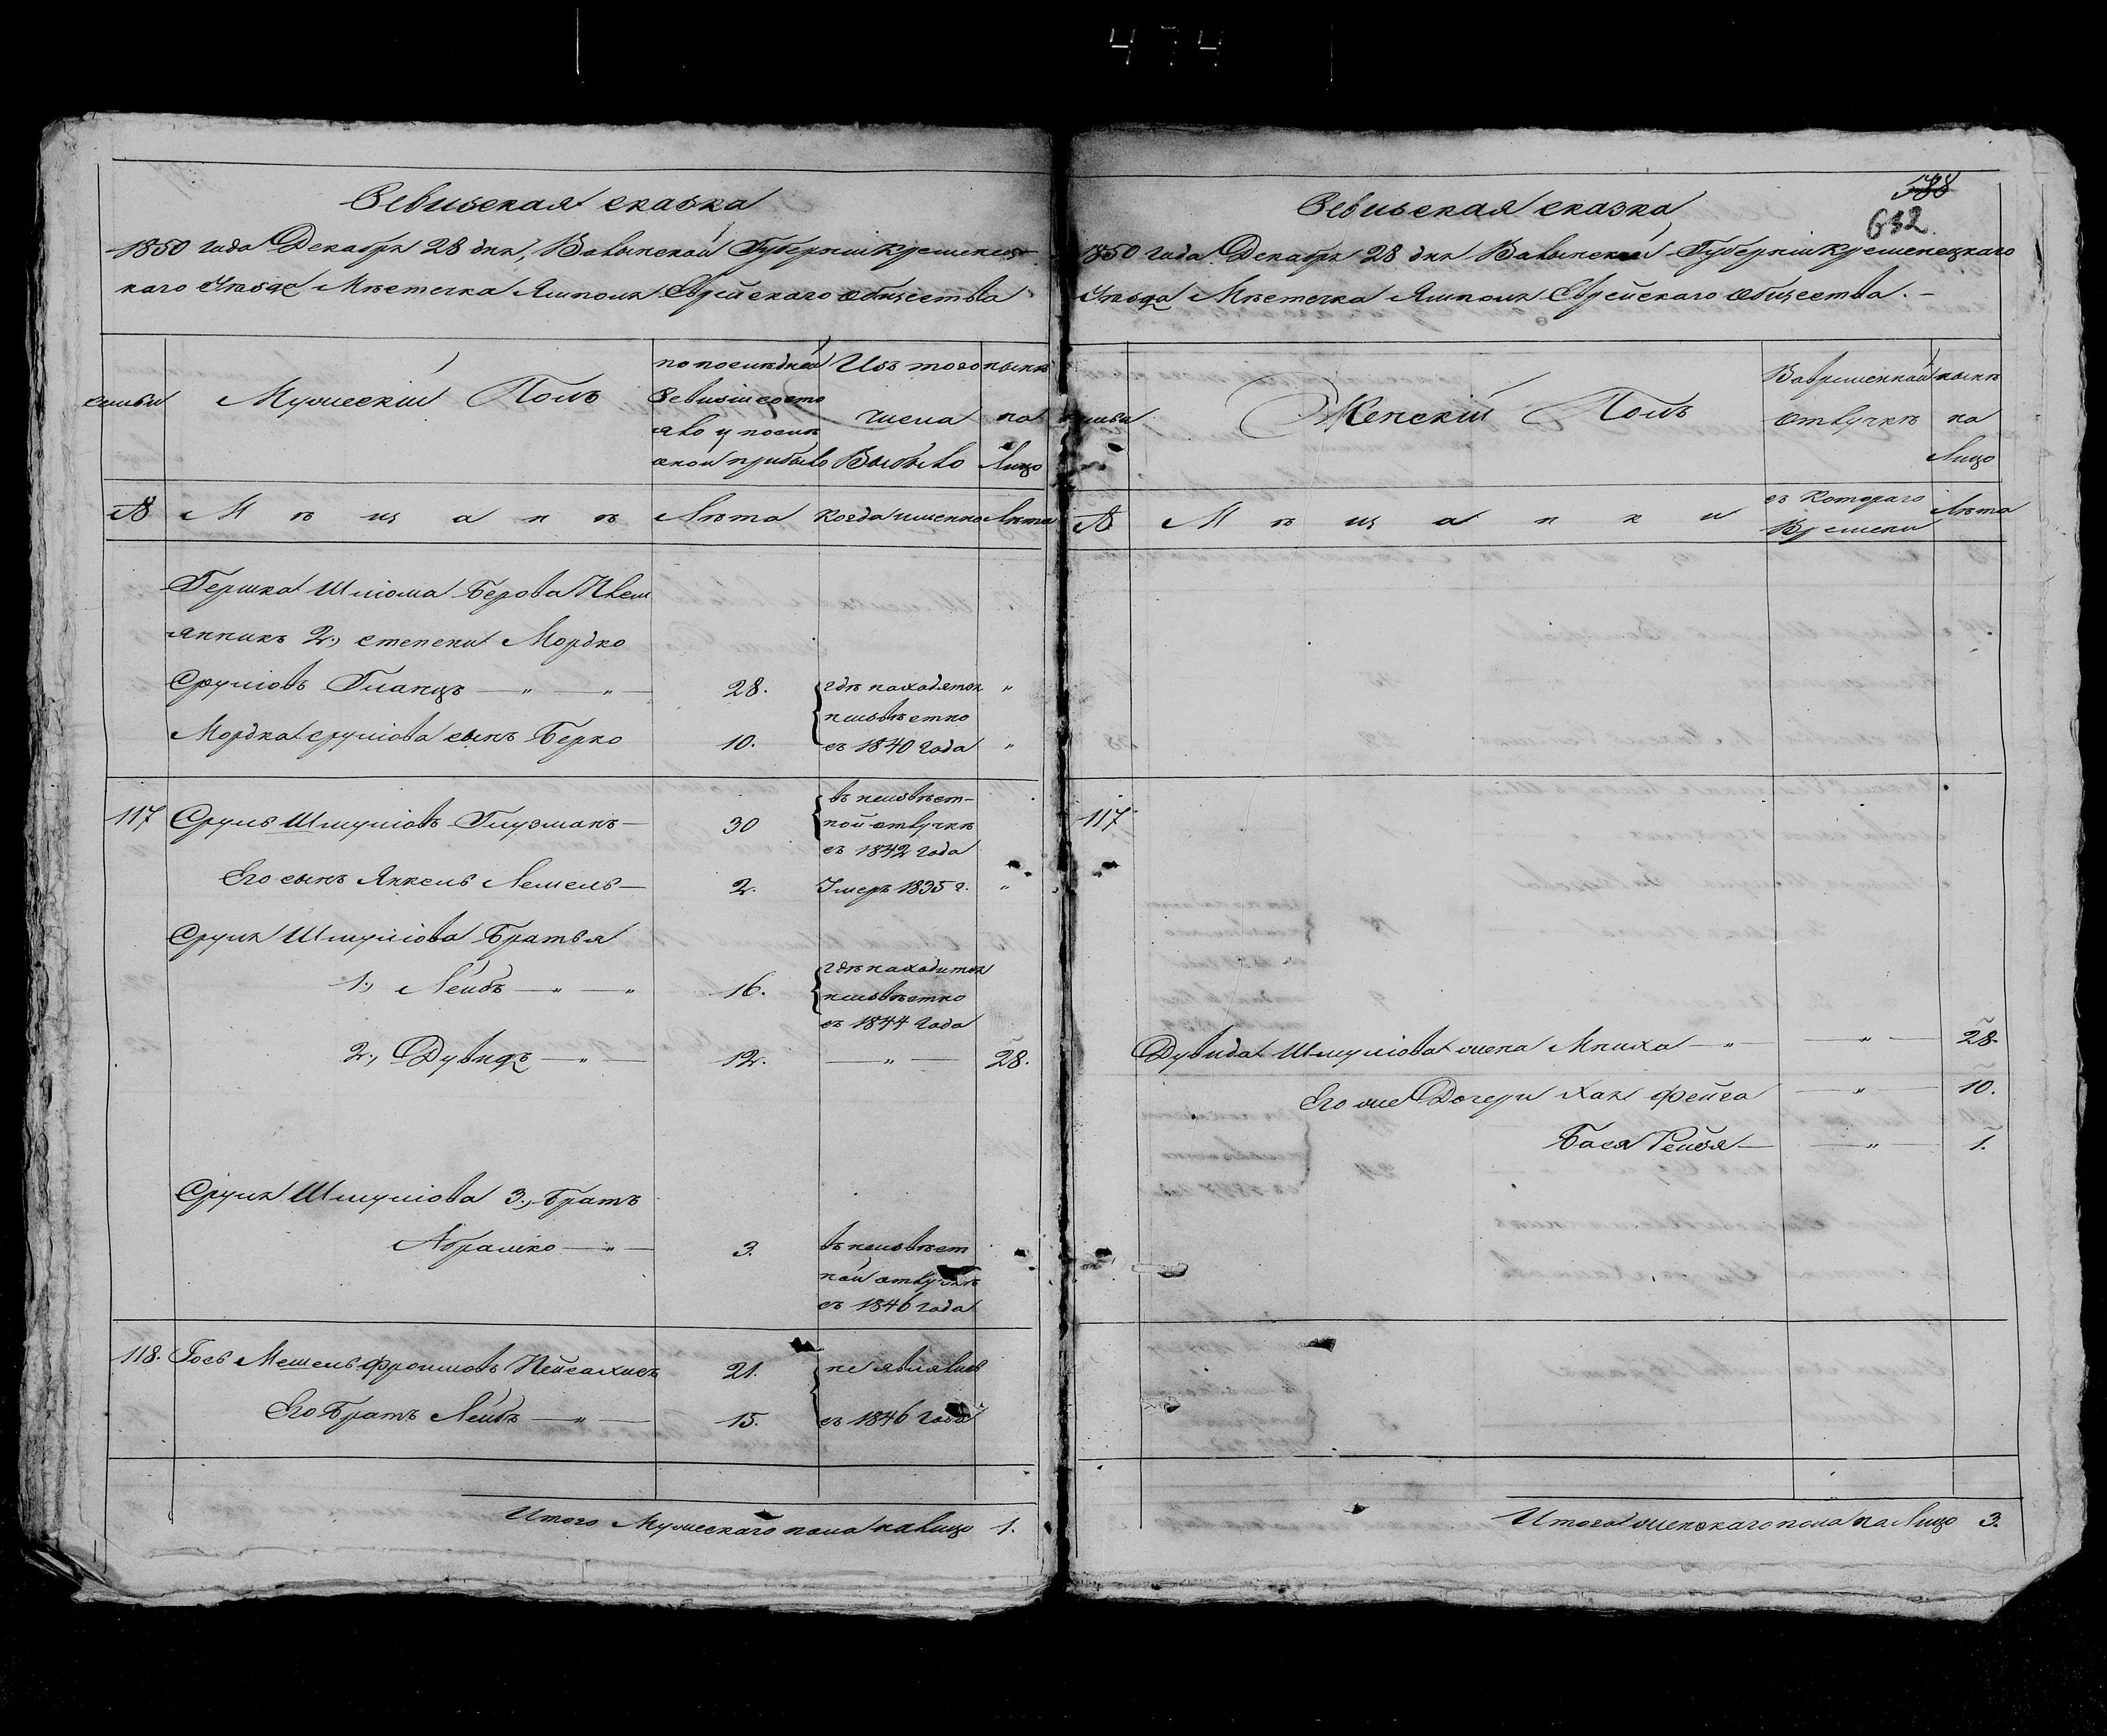 474
Ревизская сказка
1850 года Декабря 28 дня, Волынской Губернии Кременец-
каго Уѣзда Мѣстечка Ямполя Еврейскаго общества
семьи
Мужескій Полъ
по послѣдней
Ревизіи состо
яло и послѣ
оной прибыло
Изъ того
числа
Выбыло
нынѣ
на
Лицо
№
М ѣ щ а н ѣ
Лѣта
Когда именно
Лѣта
Гершка Шліома Берова Плем
янникъ 2, степени Мордко
Сруліовъ Гланцъ — " — " — 28. гдѣ находятся "
неизвѣстно
Мордка Сруліова сынъ Берко 10. съ 1840 года "
въ неизвѣст-
117 Сруль Шмуліовъ Глузманъ — 30 ной отлучкѣ
съ 1842 года
Его сынъ Янкель Лемель — 2. Умеръ 1835 г. "
Сруля Шмуліова Братья
гдѣ находится
1., Лейбъ — " — " 16. неизвѣстно
съ 1844 года
2., Дувидъ — " — 12. — " — 28.
Сруля Шмуліова 3., Братъ
Абрамко — " — 3. въ неизвѣст
ной отлучкѣ
съ 1846 года
118. Гось Мешель Фроимовъ Пейсахисъ 21. не явились
Его Братъ Лейбъ — " — 15. съ 1846 года
Итого Мужескаго пола налицо 1.
588
632.
Ревизская сказка
1850 года Декабря 28 дня Волынской Губерніи Кременецкаго
Уѣзда Мѣстечка Ямполя Еврейскаго общества. —
семьи
Женскій Полъ
Во временной
отлучкѣ
нынѣ
на
Лицо
№
М ѣ щ а н к и
съ Котораго
Времени
Лѣта
117
Дувида Шмуліова жена Мниха — " — — " — 28.
Его же Дочери Хая Фейга — " — 10.
Бася Рейзя — — " — 1.
Итого женскаго пола на Лицо 3.